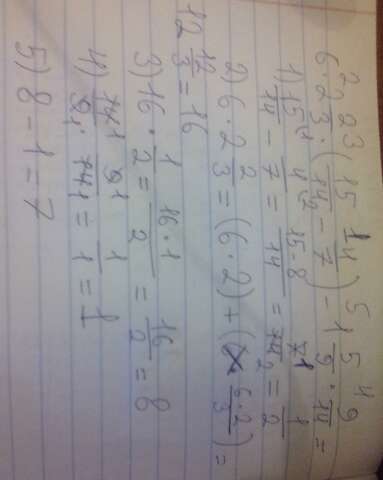 6·2 2/3·(15/14 - 4/7) - 1 5/9·9/14 =
1) 15/14 - 4/7 = 15-8/14 = 7/14 = 1/2
2) 6·2 2/3 = (6·2)+(6·2/3) =
12 12/3 = 16
3) 16·1/2 = 16·1/2 = 16/2 = 8
4) 14/9·9/14 = 1/1 = 1
5) 8-1=7